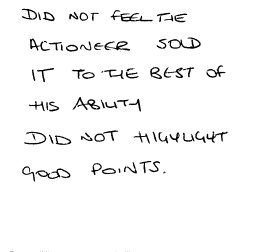 DID NOT FEEL THE
ACTIONEER SOLD
IT TO THE BEST OF
HIS ABILITY
DID NOT HIGHLIGHT
GOOD POINTS.